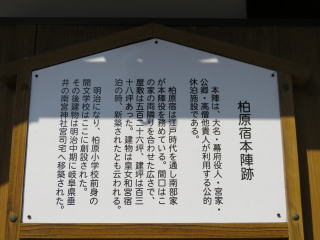 柏原宿本陣跡
本陣は、大名・幕府役人・宮家・
公卿・高僧他貴人が利用する公的
休泊施設である。
柏原宿は江戸時代を通し南部家
が本陣役を務めている。間口はこ
の家の両隣りを合わせた広さで、
屋敷は五百二十六坪、建坪は百三
十八坪あった。建物は皇女和宮宿
泊の時、新築されたとも云われる。
明治になり、柏原小学校前身の
開文学校はここに創設された。
その後建物は明治中期に岐阜県垂
井の南宮神社宮司宅へ移築された。